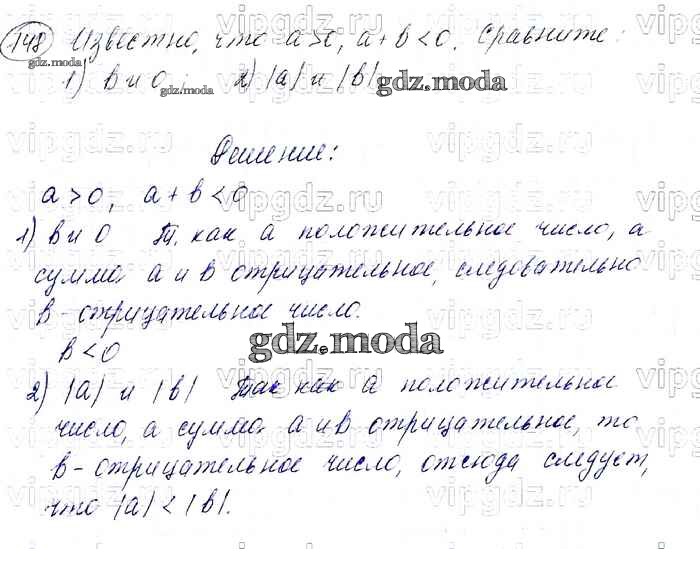 148 Известно, что a>0, a+b<0. Сравните:
1) b и 0 2) |a| и |b|
gdz.moda gdz.moda gdz.moda
Решение:
a>0, a+b<0
1) b и 0 Т. как a положительное число, а
сумма a и b отрицательное, следовательно
b - отрицательное число.
gdz.moda
b<0
2) |a| и |b| Так как a положительное
число, а сумма a и b отрицательное, то
b - отрицательное число, отсюда следует,
что |a|<|b|.
gdz.moda
vipgdz.ru